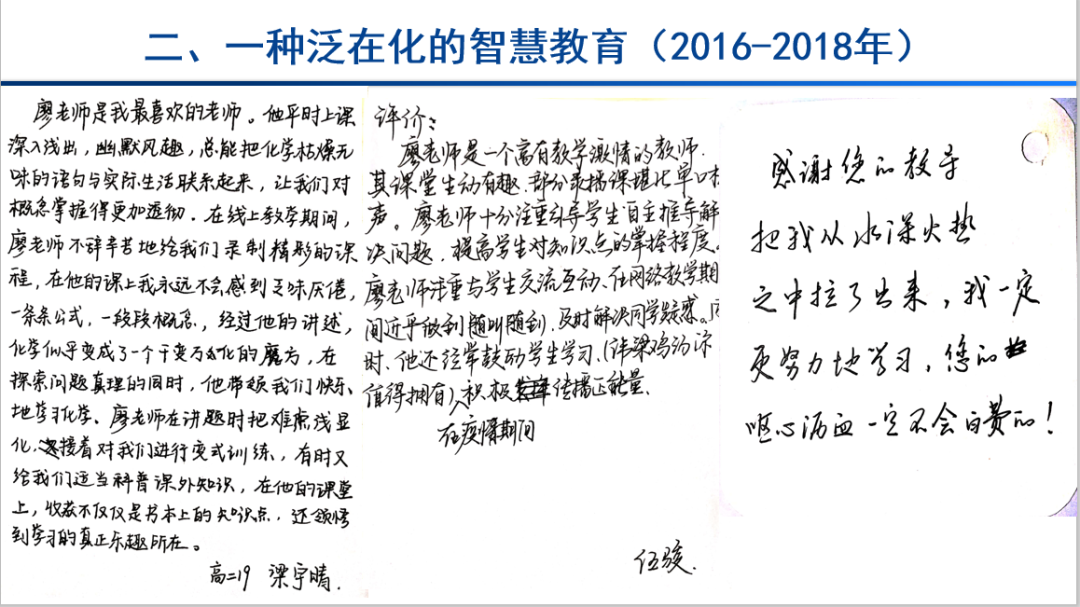 二、一种泛在化的智慧教育（2016-2018年）
廖老师是我最喜欢的老师。他平时上课
深入浅出，幽默风趣，总能把化学枯燥无
味的语句与实际生活联系起来，让我们对
概念掌握得更加透彻．在线上教学期间，
廖老师不辞辛苦地给我们录制精彩的课
程，在他的课上我永远不会感到乏味厌倦，
一条条公式，一段段概念，经过他的讲述，
化学似乎变成了一个千变万化的魔方，在
探索问题真理的同时，他带领我们快乐
地学习化学、廖老师在讲题时把难点浅显
化，接着对我们进行变式训练，有时又
给我们适当科普课外知识，在他的课堂
上，收获不仅仅是书本上的知识点，还领悟
到学习的真正乐趣所在。
高二19 梁宇晴．
评价：
廖老师是一个富有教学激情的教师．
其课堂生动有趣、部分录播课堪比单口相
声。廖老师十分注重引导学生自主推导解
决问题，提高学生对知识点的掌握程度．
廖老师注重与学生交流互动、在网络教学期
间近乎做到随叫随到，及时解决同学疑惑。同
时、他还经常鼓励学生学习、(
值得拥有)，积极传播正能量．
在疫情期间
伍骏．
感谢您的教导
把我从水深火热
之中拉了出来，我一定
更努力地学习，您的
呕心沥血一定不会白费的！